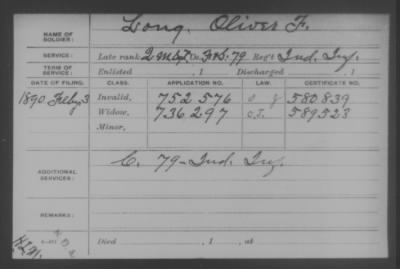 Long, Oliver F.
NAME OF SOLDIER:
SERVICE: Late rank 2 M Sgt, Co. F & S. 79 Reg't Ind. Inf.
TERM OF SERVICE: Enlisted , 1 Discharged , 1
DATE OF FILING. CLASS. APPLICATION NO. LAW. CERTIFICATE NO.
1890 Feby 3 Invalid, 752 576 580.839
Widow, 736 297 589523
Minor,
C. 79 - Ind. Inf.
ADDITIONAL SERVICES:
REMARKS:
Died , 1 , at